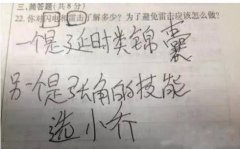 三、简答题(共8分)
22. 你对闪电和雷击了解多少?为了避免雷击应该怎么做?
一个是延时类锦囊
另一个是张角的技能
选小乔